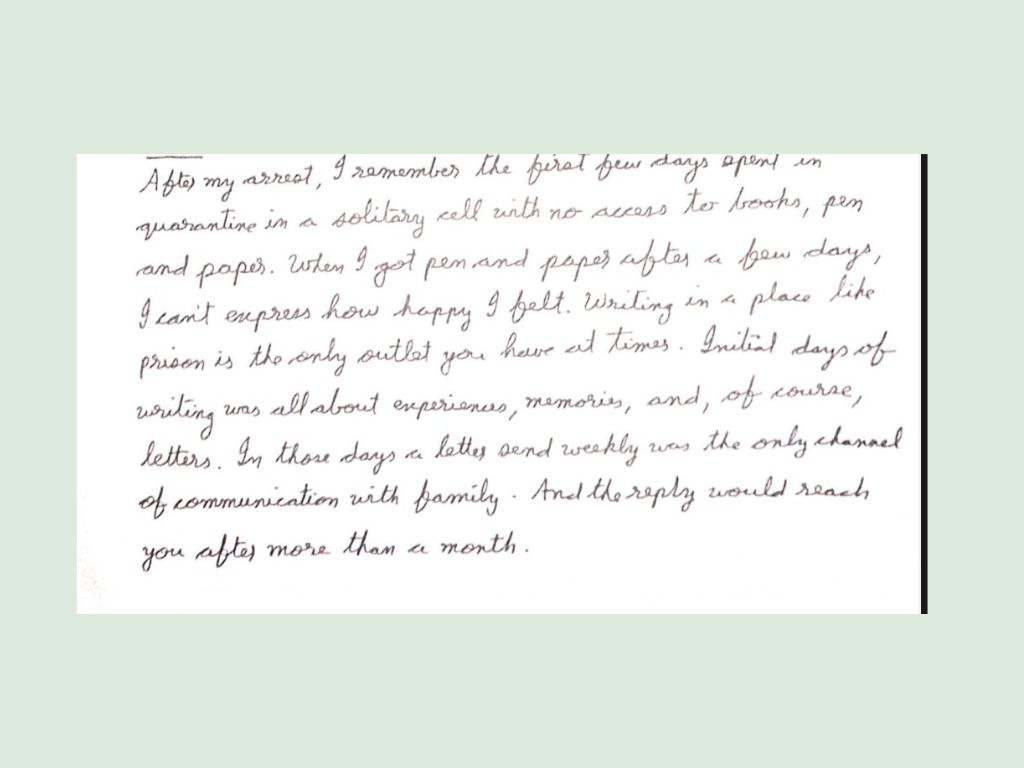 After my arrest, I remember the first few days spent in
quarantine in a solitary cell with no access to books, pen
and paper. When I got pen and paper after a few days,
I can't express how happy I felt. Writing in a place like
prison is the only outlet you have at times. Initial days of
writing was all about experiences, memories, and, of course,
letters. In those days a letter send weekly was the only channel
of communication with family. And the reply would reach
you after more than a month.